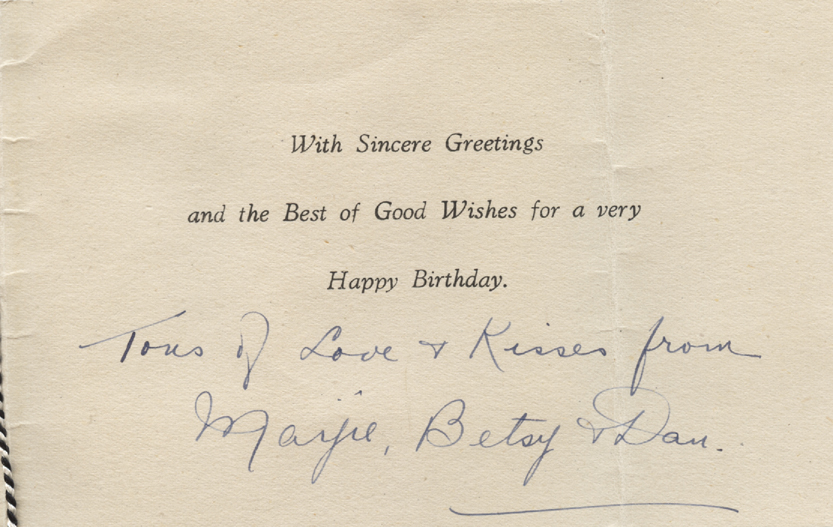 With Sincere Greetings
and the Best of Good Wishes for a very
Happy Birthday.
Tons of Love & Kisses from
Marjie, Betsy & Dan.